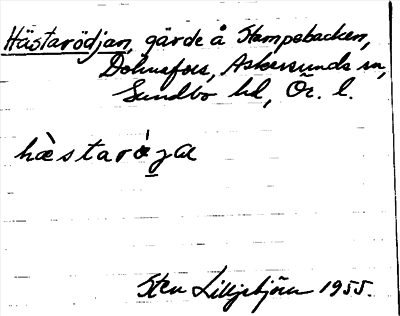 Hästarödjan, gärde å Stampebacken,
Dohnafors, Askersunds sn,
Sundbo hd, Ör. l.
hὲstarø̀ʒa
Sten Lilljebjörn 1955.